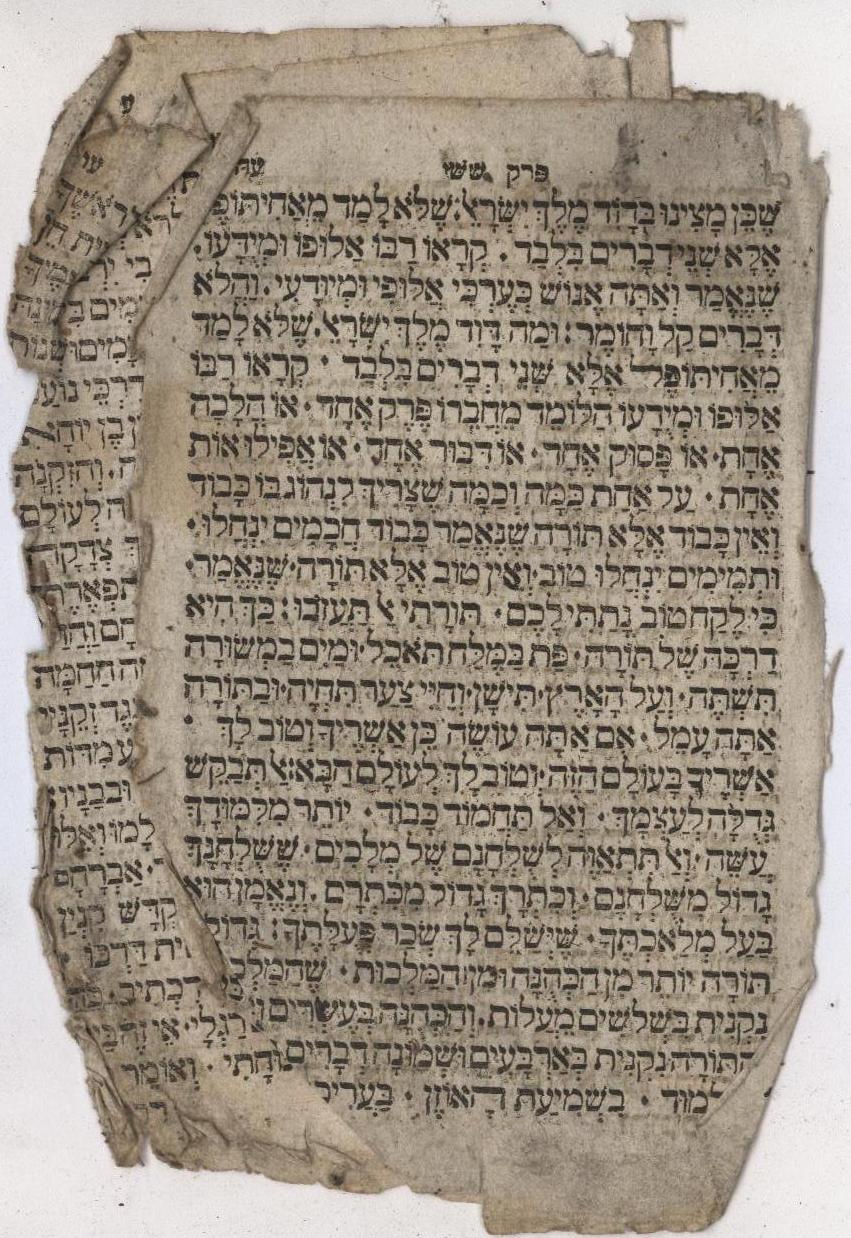 פרק ששי
שֶׁכֵּן מָצִינוּ בְּדָוִד מֶלֶךְ יִשְׂרָאֵל. שֶׁלֹּא לָמַד מֵאֲחִיתוֹפֶ
אֶלָּא שְׁנֵי דְבָרִים בִּלְבָד. קְרָאוֹ רַבּוֹ אַלּוּפוֹ וּמְיֻדָּעוֹ.
שֶׁנֶּאֱמַר וְאַתָּה אֱנוֹשׁ כְּעֶרְכִּי אַלּוּפִי וּמְיוּדָּעִי. וַהֲלֹא
דְּבָרִים קַל וָחוֹמֶר: וּמַה דָּוִד מֶלֶךְ יִשְׂרָאֵל. שֶׁלֹּא לָמַד
מֵאֲחִיתוֹפֶל אֶלָּא שְׁנֵי דְבָרִים בִּלְבָד · קְרָאוֹ רַבּוֹ
אַלּוּפוֹ וּמְיֻדָּעוֹ הַלּוֹמֵד מֵחֲבֵרוֹ פֶּרֶק אֶחָד · אוֹ הֲלָכָה
אֶחָת · אוֹ פָּסוּק אֶחָד · אוֹ דִּבּוּר אֶחָד · אוֹ אֲפִילוּ אוֹת
אֶחָת · עַל אַחַת כַּמָּה וְכַמָּה שֶׁצָּרִיךְ לִנְהוֹג בּוֹ כָּבוֹד
וְאֵין כָּבוֹד אֶלָּא תּוֹרָה שֶׁנֶּאֱמַר כָּבוֹד חֲכָמִים יִנְחֲלוּ ·
וּתְמִימִים יִנְחֲלוּ טוֹב · וְאֵין טוֹב אֶלָּא תוֹרָה · שֶׁנֶּאֱמַר ·
כִּי לֶקַח טוֹב נָתַתִּי לָכֶם · תּוֹרָתִי אַל תַּעֲזֹבוּ: כַּךְ הִיא
דַרְכָּהּ שֶׁל תּוֹרָה · פַּת בְּמֶלַח תֹּאכֵל · וּמַיִם בַּמְשׂוּרָה
תִּשְׁתֶּה · וְעַל הָאָרֶץ תִּישָׁן · וְחַיֵּי צַעַר תִּחְיֶה · וּבַתּוֹרָה
אַתָּה עָמֵל · אִם אַתָּה עוֹשֶׂה כֵּן אַשְׁרֶיךָ וְטוֹב לָךְ ·
אַשְׁרֶיךָ בָּעוֹלָם הַזֶּה · וְטוֹב לָךְ לְעוֹלָם הַבָּא: אַל תְּבַקֵּשׁ
גְּדֻלָּה לְעַצְמָךְ · וְאַל תַּחֲמוֹד כָּבוֹד · יוֹתֵר מִלִּמּוּדָךְ
עֲשֵׂה · וְאַל תִּתְאַוֶּה לְשֻׁלְחָנָם שֶׁל מְלָכִים · שֶׁשֻּׁלְחָנְךָ
גָּדוֹל מִשֻּׁלְחָנָם · וְכִתְרָךְ גָּדוֹל מִכִּתְרָם. וְנֶאֱמָן הוּא
בַּעַל מְלַאכְתֶּךָ · שֶׁיְּשַׁלֵּם לָךְ שְׂכַר פְּעֻלָּתֶךָ: גְּדוֹלָ
תּוֹרָה יוֹתֵר מִן הַכְּהֻנָּה וּמִן הַמַּלְכוּת · שֶׁהַמַּלְכ
נִקְנֵית בִּשְׁלֹשִׁים מַעֲלוֹת. וְהַכְּהֻנָּה בְּעֶשְׂרִים
הַתּוֹרָה נִקְנֵית בְּאַרְבָּעִים וּשְׁמוֹנָה דְבָרִים
למוּד · בִּשְׁמִיעַת הָאוֹזֶן · בַּעֲרִי
עי
לְעוֹלָם
צְדָקָה
הַחַמָּה
עִמִּדּוֹת
אַבְרָהָם
קִנְיַן
דַּרְכּוֹ
דִּכְתִיב
רַגְלָי · אֵי זֶה
וְאוֹמֵר